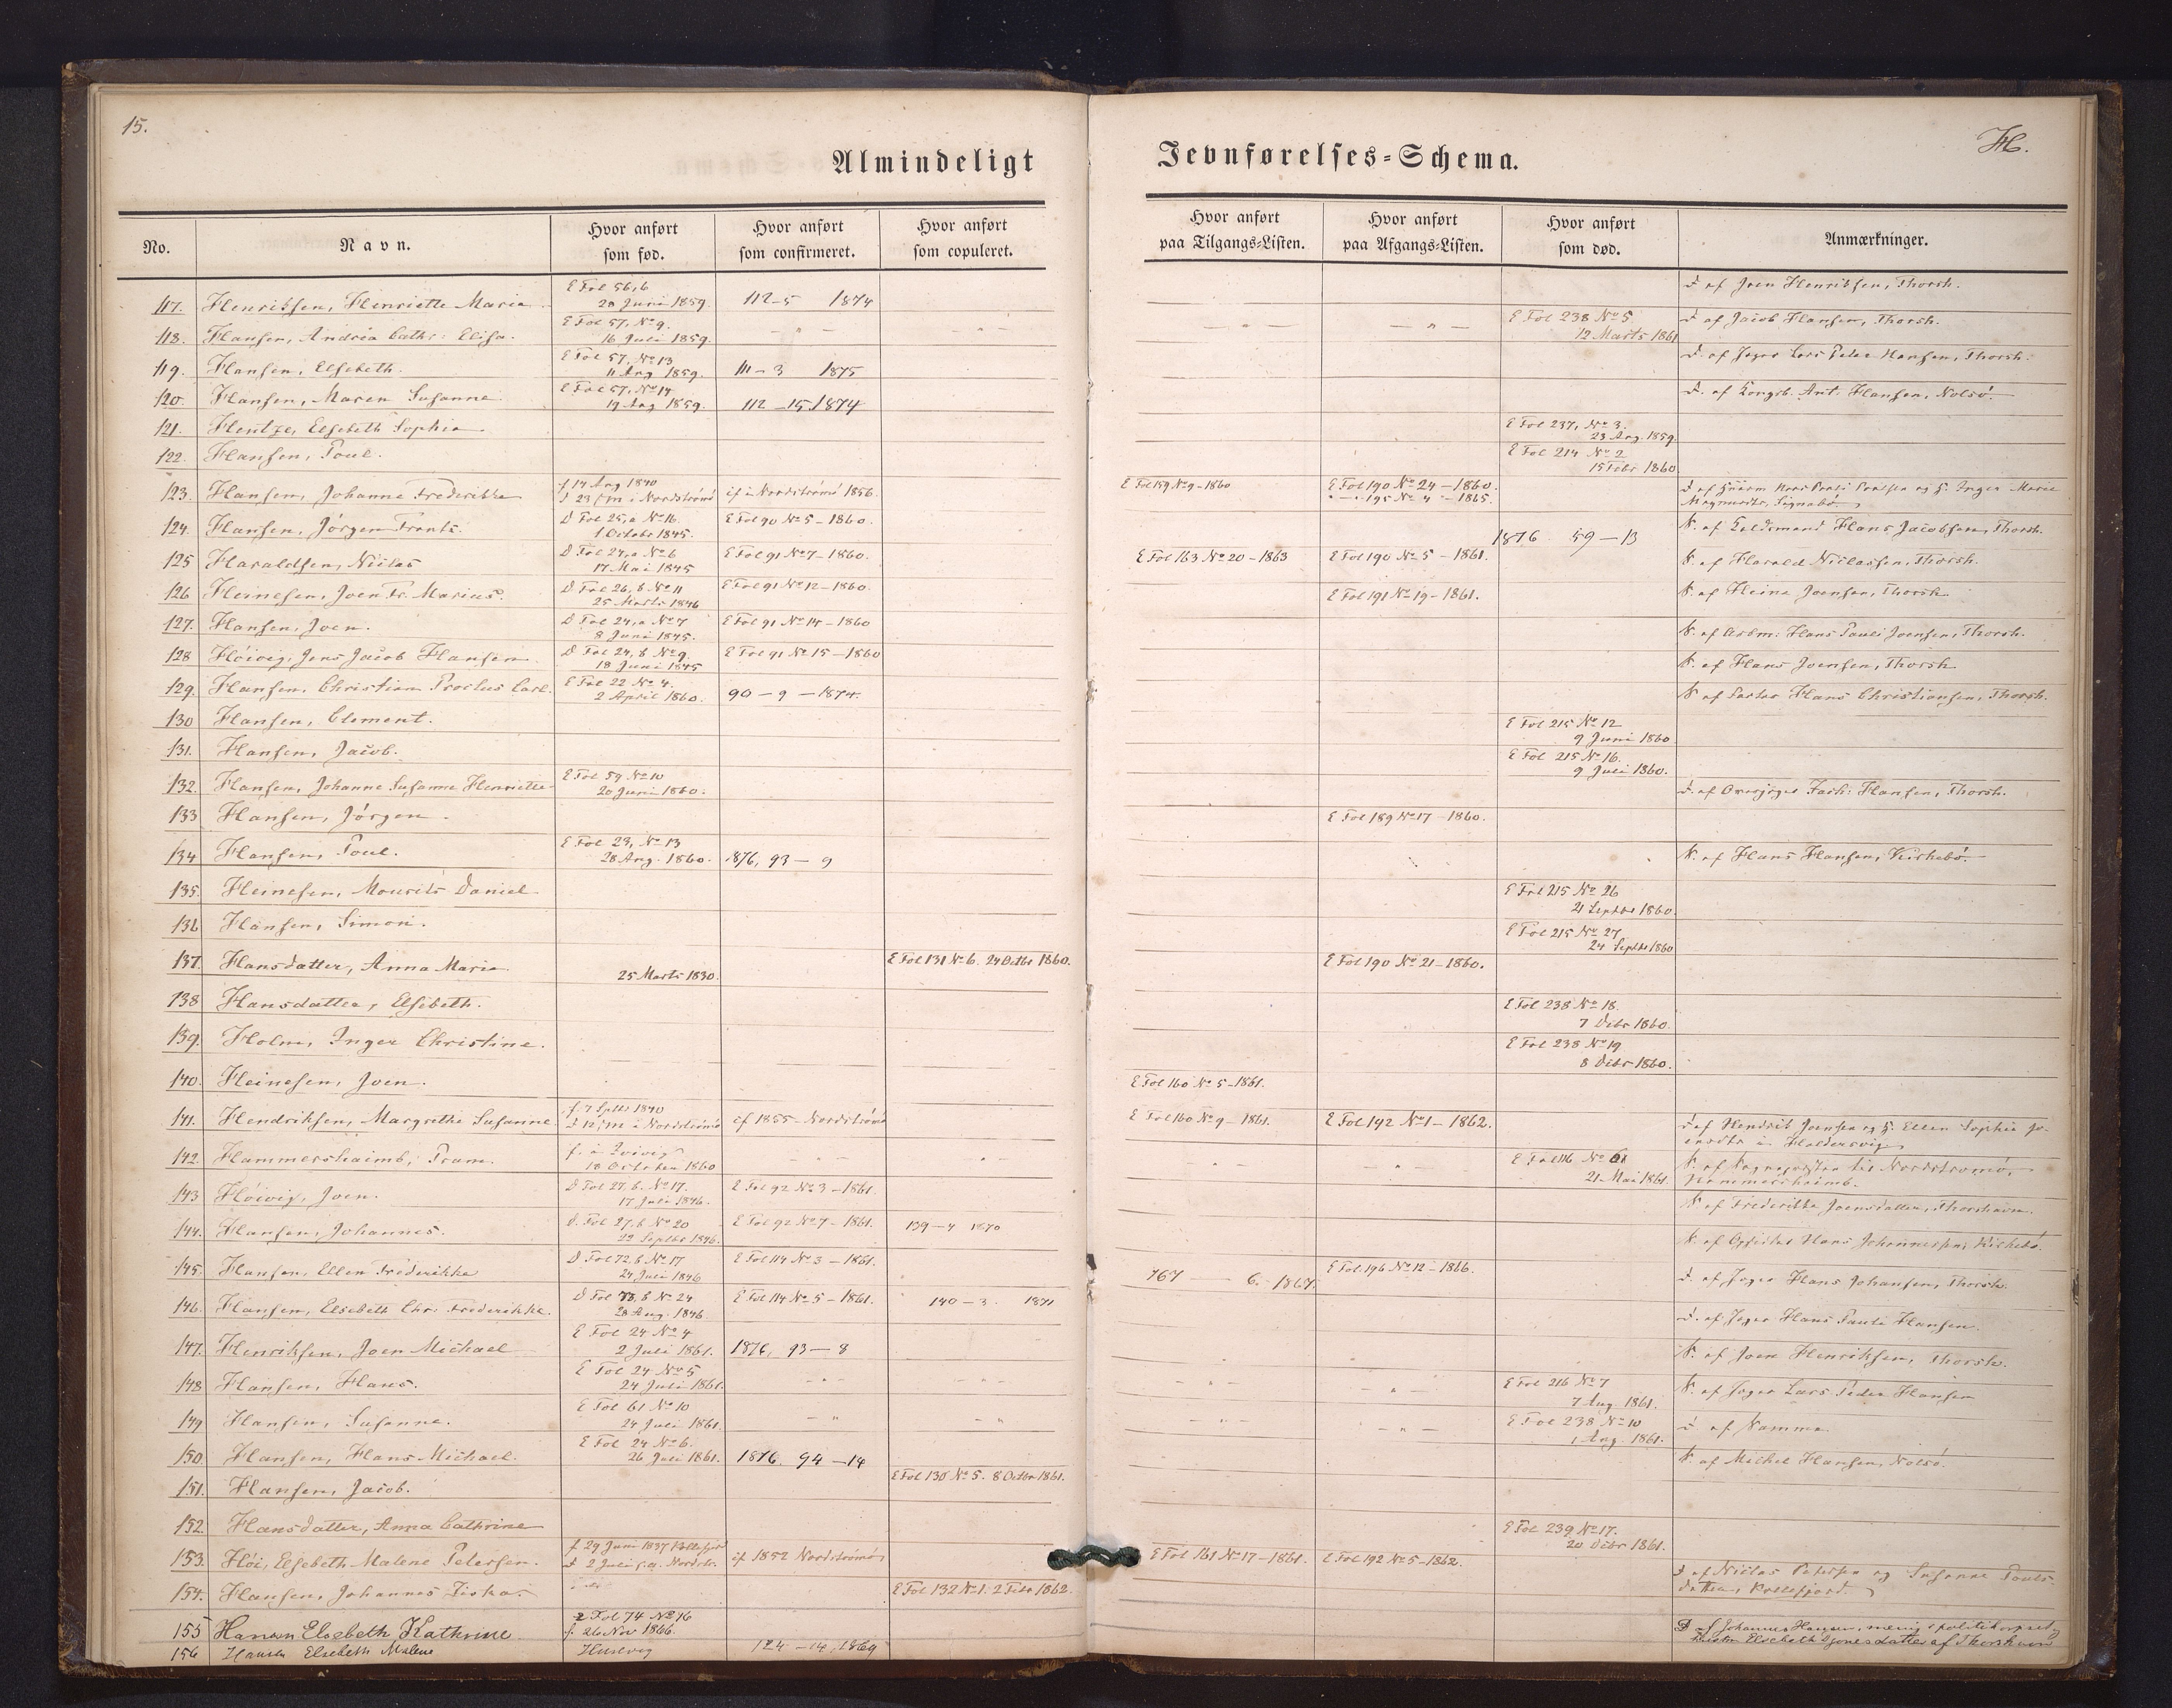 15.
H.
Almindeligt Jevnførelses=Schema.
No. Navn. Hvor anført som fød. Hvor anført som confirmeret. Hvor anført som copuleret. Hvor anført paa Tilgangs=Listen. Hvor anført paa Afgangs=Listen. Hvor anført som død. Anmærkninger.
117. Henriksen, Henriette Maria E Fol 56,6 20 Juni 1859. 112-5 1874 D af Joen Henriksen, Thorsh.
118. Hansen, Andrea Cathr: Elisa. E Fol 57, No 9. 16 Juli 1859. - " - - " - - " - - " - E Fol 238 No 5 12 Marts 1861 D af Jacob Hansen, Thorsh.
119. Hansen, Elsebeth. E Fol 57, No 13 11 Aug 1859. 111-3 1875 D. af Jæger Lars Peder Hansen, Thorsh.
120. Hansen, Maren Susanne. E Fol 57, No 14 19 Aug 1859. 112-15 1874 D. af Kongsb. Ant. Hansen, Nolsö.
121. Hentze, Elsebeth Sophia E Fol 237, No 3. 23 Aug. 1859.
122. Hansen, Poul. E Fol 214 No 2 15 Febr 1860.
123. Hansen, Johanne Frederikke f 14 Aug 1840 d 23/m i Nordströmö if i Nordströmö 1856. E Fol 159 No 9-1860 E Fol 190 No 24-1860. " - " 195 No 4 " - 1865.
124. Hansen, Jörgen Frants. D Fol 25,a No 16. 1 Octobr 1845. E Fol 90 No 5-1860. 1876 59-13 S. af Guldsmand Hans Jacobsen, Thorsh.
125 Haraldsen, Niclas D Fol 24,a No 6 17 Mai 1845 E Fol 91 No 7-1860. E Fol 163 No 20-1863 E Fol 190 No 5-1861. S. af Harald Niclassen, Thorsh.
126 Heinesen, Joen Fr. Marius. D Fol 26,b No 11 25 Marts 1846 E Fol 91 No 12-1860. E Fol 191 No 19-1861. S. af Heine Joensen, Thorsh
127. Hansen, Joen. D Fol 24,a No 7 8 Juni 1845. E Fol 91 No 14-1860 S. af Arbm: Hans Pauli Joensen, Thorsh.
128 Höivig, Jens Jacob Hansen D Fol 24,b No 9. 18 Juni 1845 E Fol 91 No 15-1860 S. af Hans Joensen, Thorsh
129. Hansen, Christian Proclus Carl. E Fol 22 No 4. 2 April 1860. 90-9-1874. S af Hans Christiansen, Thorsh.
130 Hansen, Clement. E Fol 215 No 12 9 Juni 1860
131. Hansen, Jacob. E Fol 215 No 16. 9 Juli 1860.
132. Hansen, Johanne Susanne Henriette E Fol 59 No 10 20 Juni 1860. D. af Overjæger Zach: Hansen, Thorsh.
133 Hansen, Jörgen. E Fol 189 No 17-1860.
134 Hansen, Poul. E Fol 23, No 13 28 Aug. 1860. 1876, 93-9 S. af Hans Hansen, Kirkebö.
135. Heinesen, Mourits Daniel E Fol 215 No 26 21 Septbr 1860.
136 Hansen, Simon. E Fol 215 No 27 24 Septbr 1860
137. Hansdatter, Anna Maria 25 Marts 1830. E Fol 131 No 6. 24 Octbr 1860. E Fol 190 No 21-1860.
138 Hansdatter, Elsebeth. E Fol 238 No 18. 7 Debr 1860.
139. Holm, Inger Christine. E Fol 238 No 19 8 Debr 1860.
140. Heinesen, Joen. E Fol 160 No 5-1861.
141. Hendriksen, Margrethe Susanne f. 7 Sptbr 1840 d 12/m i Nordströmö if 1855-Nordströmö E Fol 160 No 9-1861. E Fol 192 No 1-1862. D af Hendrik Joensen og H. Ellen Sophia Joensdtr i Haldersvig
142. Hammershaimb, Fram. f. i Qvivig 18 October 1860 - " - - " - - " - - " - E Fol 116 No 21 Mai 1861. S. af Sognepræsten til Nordströmö, Hammershaimb.
143 Höivig, Joen. D Fol 27,b. No 17. 17 Juli 1846. E Fol 92 No 3-1861. S af Frederikke Joensdatter, Thorshavn.
144. Hansen, Johannes. D. Fol 27,b No 20 29 Septbr 1846. E Fol 92 No 7-1861. 139-4 1870 S. af Hans Johannesen, Kirkebö.
145. Hansen, Ellen Frederikke D Fol 72.b No 17 24 Juli 1846 E Fol 114 No 3-1861. 167 - 6.-1867. E Fol 196 No 12-1866. D. af Jæger Hans Johansen, Thorsh.
146. Hansen, Elsebeth Chr. Frederikke. D Fol 73,b No 24 28 Aug. 1846 E Fol 114 No 5-1861. 140-3. 1871 D. af Jæger Hans Pauli Hansen.
147. Henriksen, Joen Michael E Fol 24 No 4 2 Juli 1861. 1876, 93-8 S. af Joen Henriksen, Thorsh.
148 Hansen, Hans. E Fol 24 No 5 24 Juli 1861. - " - - " - - " - - " - E Fol 216 No 7 7 Aug 1861. S. af Jæger Lars Peder Hansen
149 Hansen, Susanne. E Fol 61 No 10 24 Juli 1861. - " - " - " - - " - E Fol 238 No 10 1 Aug. 1861. D af Samme.
150. Hansen, Hans Michael. E Fol 24 No 6. 26 Juli 1861. 1876. 94-14 S af Michel Hansen, Nolsö.
151. Hansen, Jacob. E Fol 130 No 5. 8 Octbr 1861.
152. Hansdatter, Anna Cathrine E Fol 239 No 17. 20 Debr 1861.
153. Höi, Elsebeth Malene Petersen. f 29 Juni 1837 Kollefjord d 2 Juli s.a. Nordstr. if 1852 Nordströmö E Fol 161 No 17-1861. E Fol 192 No 5-1862. D af Niclas Petersen og Susanne Poulsdatter, Kollefjord.
154. Hansen, Johannes Ziska. E Fol 132 No 1. 2 Febr 1862.
155 Hansen Elsebeth Kathrine E Fol 74 No 16 f. 26 Nov 1866. D af Johannes Hansen, menig i politikorpset og Hustru Elsebeth Djonesdatter af Thorshavn
156 Hansen Elsebeth Malene Huslvig 124-14. 1869